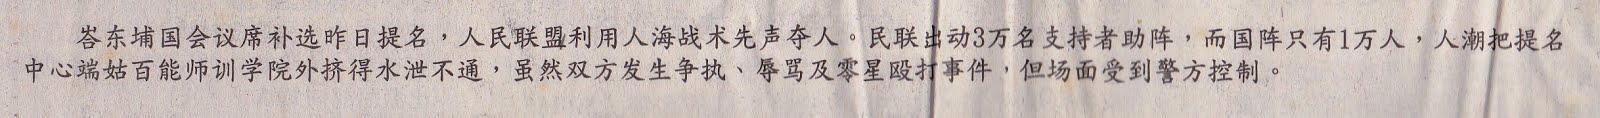 峇东埔国会议席补选昨日提名，人民联盟利用人海战术先声夺人。民联出动3万名支持者助阵，而国阵只有1万人，人潮把提名
中心端姑百能师训学院外挤得水泄不通，虽然双方发生争执、辱骂及零星殴打事件，但场面受到警方控制。